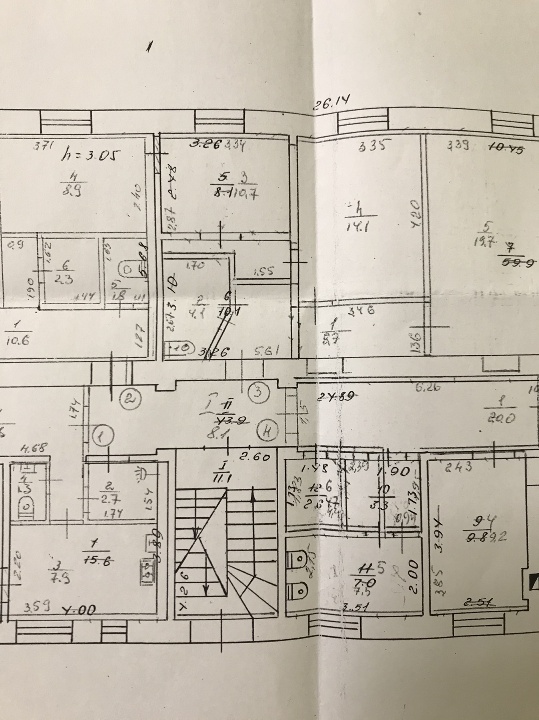 26.14
3.71
h = 3.05
3.26 3,34
3.35
3,39 10.45
4
8,9
2.48
5 3
8.1 10,7
4
14,1
4.20
5
19,7
7
59.9
2,40
12,87
0,9
1,62
6
2.3
1,63
5
1,8
1,44
1.90
1,70
1,55
3.10
2
4,1
6
10,1
2,67
3,46
1
10.6
1,27
3,26
5,61
1
5,7
1,36
6,26
24.89
1,74
2
3
I II
43.9
8,1
1,5
1
20,0
1
4
4.68
2.60
I
11,1
2
2,7
1,54
1,74
1,48
2,39
1.90
2,43
12 6
10
3.3
1.73
9 4
9.8 9,2
3.94
3,85
1
15.6
3
7,9
2,20
3.89
4.26
2,15
11 5
7.0
7,5
2.00
3,59
4.00
3,51
2.51